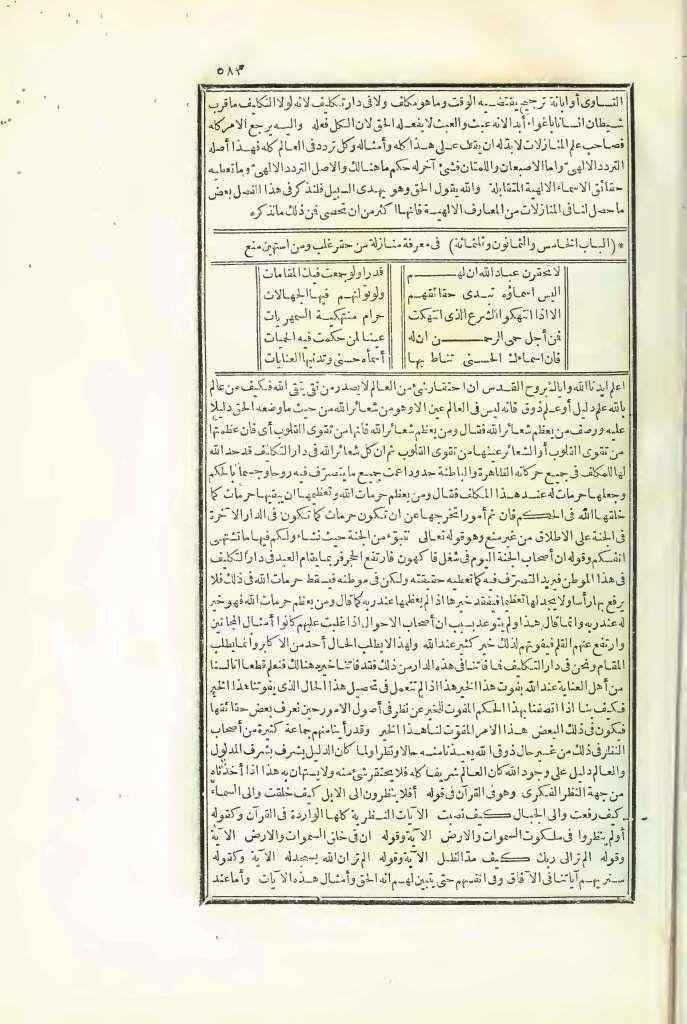 ٥٨٣
التساوى أو ابانة ترجيح يقتضيه الوقت وما هو مكلف ولا فى دار تكليف لانه لولا التكليف ما قرب
شيطان انسانا باغواء أبدا لانه عبث والعبث لا يفعله الحق لان الكل فعله واليه يرجع الامر كله
فصاحب علم المنازلات لا بدّ له أن يقف على هذا كله وأمثاله وكل تردد فى العالم كله فهذا أصله
التردد الالهىّ واما الاصبعان واللمتان فشئ آخر له حكم ما هنالك والاصل التردد الالهىّ وما تعطيه
حقائق الاسماء الالهية المتقابلة والله يقول الحق وهو يهدى السبيل فلنذكر فى هذا الفصل بعض
ما حصل لنا فى المنازلات من المعارف الالهية فانها اكثر من ان تحصى فمن ذلك ما نذكره
* (الباب الخامس والثمانون وثلثمائة) فى معرفة منازلة من حقر غلب ومن استهين منع
لا تحقرن عباد الله ان لهم قدرا ولو جمعت فيك المقامات
اليس اسماؤه تبدى حقائقهم ولو تولتهم فيها الجهالات
الا اذا انتهكوا الشرع الذى انتهكت حرام منتهكيه السمهريات
فمن أجل حمى الرحمن ان له عينا لمن حكمت فيه الحميات
فان اسماءك الحسنى تناط بها أسماء حسنى وتدنيها العنايات
اعلم ايدنا الله واياك بروح القدس ان احتقار شئ من العالم لا يصدر من تقى يتقى الله فكيف من عالم
بالله علم دليل أو علم ذوق فانه ليس فى العالم عين الا وهو من شعائر الله من حيث ما وضعه الحق دليلا
عليه ووصف من يعظم شعائر الله فقال ومن يعظم شعائر الله فانها من تقوى القلوب أى فان عظمتها
من تقوى القلوب أو الشعائر عينها من تقوى القلوب ثم ان كل شعائر الله فى دار التكليف قد حد الله
لها للمكلف فى جميع حركاته الظاهرة والباطنة حدودا عمت جميع ما يتصرّف فيه روحا وجسما بالحكم
وجعلها حرمات له عند هذا المكلف فقال ومن يعظم حرمات الله وتعظيمها ان يبقيها حرمات كما
خلقها الله فى الحكم فان ثم أمورا تخرجها عن ان تكون حرمات كما تكون فى الدار الآخرة
فى الجنة على الاطلاق من غير منع وهو قوله تعالى نتبوّء من الجنة حيث نشاء ولكم فيها ما تشتهى
انفسكم وقوله ان أصحاب الجنة اليوم فى شغل فاكهون فارتفع الحجر فربما يقام العبد فى دار التكليف
فى هذا الموطن فيريد التصرّف فيه كما تعطيه حقيقته ولكن فى موطنه فيسقط حرمات الله فى ذلك فلا
يرفع بها رأسا ولا يجد لها تعظيما فيفقد خيرها اذا لم يعظمها عند ربه كما قال ومن يعظم حرمات الله فهو خير
له عند ربه وانما قال هذا ولم يتوعد بسبب ان أصحاب الاحوال اذا غلبت عليهم كانوا أمثال المجانين
وارتفع عنهم القلم فيفوتهم لذلك خير كثير عند الله ولهذا لا يطلب الحال أحد من الاكابر وانما يطلب
المقام ونحن فى دار التكليف فما فاتنا فى هذه الدار من ذلك فقد فاتنا خيره هنالك فنعلم قطعا انا لسنا
من أهل العناية عند الله بفوت هذا الخير هذا اذا لم نتعمل فى تحصيل هذا الحال الذى يفوتنا هذا الخير
فكيف بنا اذا اتصفنا بهذا الحكم المفوت للخير عن نظر فى أصول الامور حين نعرف بعض حقائقها
فيكون فى ذلك البعض هذا الامر المفوّت لنا هذا الخير وقد رأينا منهم جماعة كثيرة من أصحاب
النظر فى ذلك من غير حال ذوقى الله يعيذنا منه حالا ونظرا ولما كان الدليل يشرف بشرف المدلول
والعالم دليل على وجود الله كان العالم شريفا كله فلا يحتقر شئ منه ولا يستهان به هذا اذا أخذناه
من جهة النظر الفكرى وهو فى القرآن فى قوله أفلا ينظرون الى الابل كيف خلقت والى السماء
كيف رفعت والى الجبال كيف نصبت الآيات النظرية كلها الواردة فى القرآن وكقوله
أولم ينظروا فى ملكوت السموات والارض الآية وقوله ان فى خلق السموات والارض الآية
وقوله الم تر الى ربك كيف مدّ الظل الآية وقوله الم تر ان الله يسجد له الآية وكقوله
سنريهم آياتنا فى الآفاق وفى انفسهم حتى يتبين لهم انه الحق وأمثال هذه الآيات وأما عند